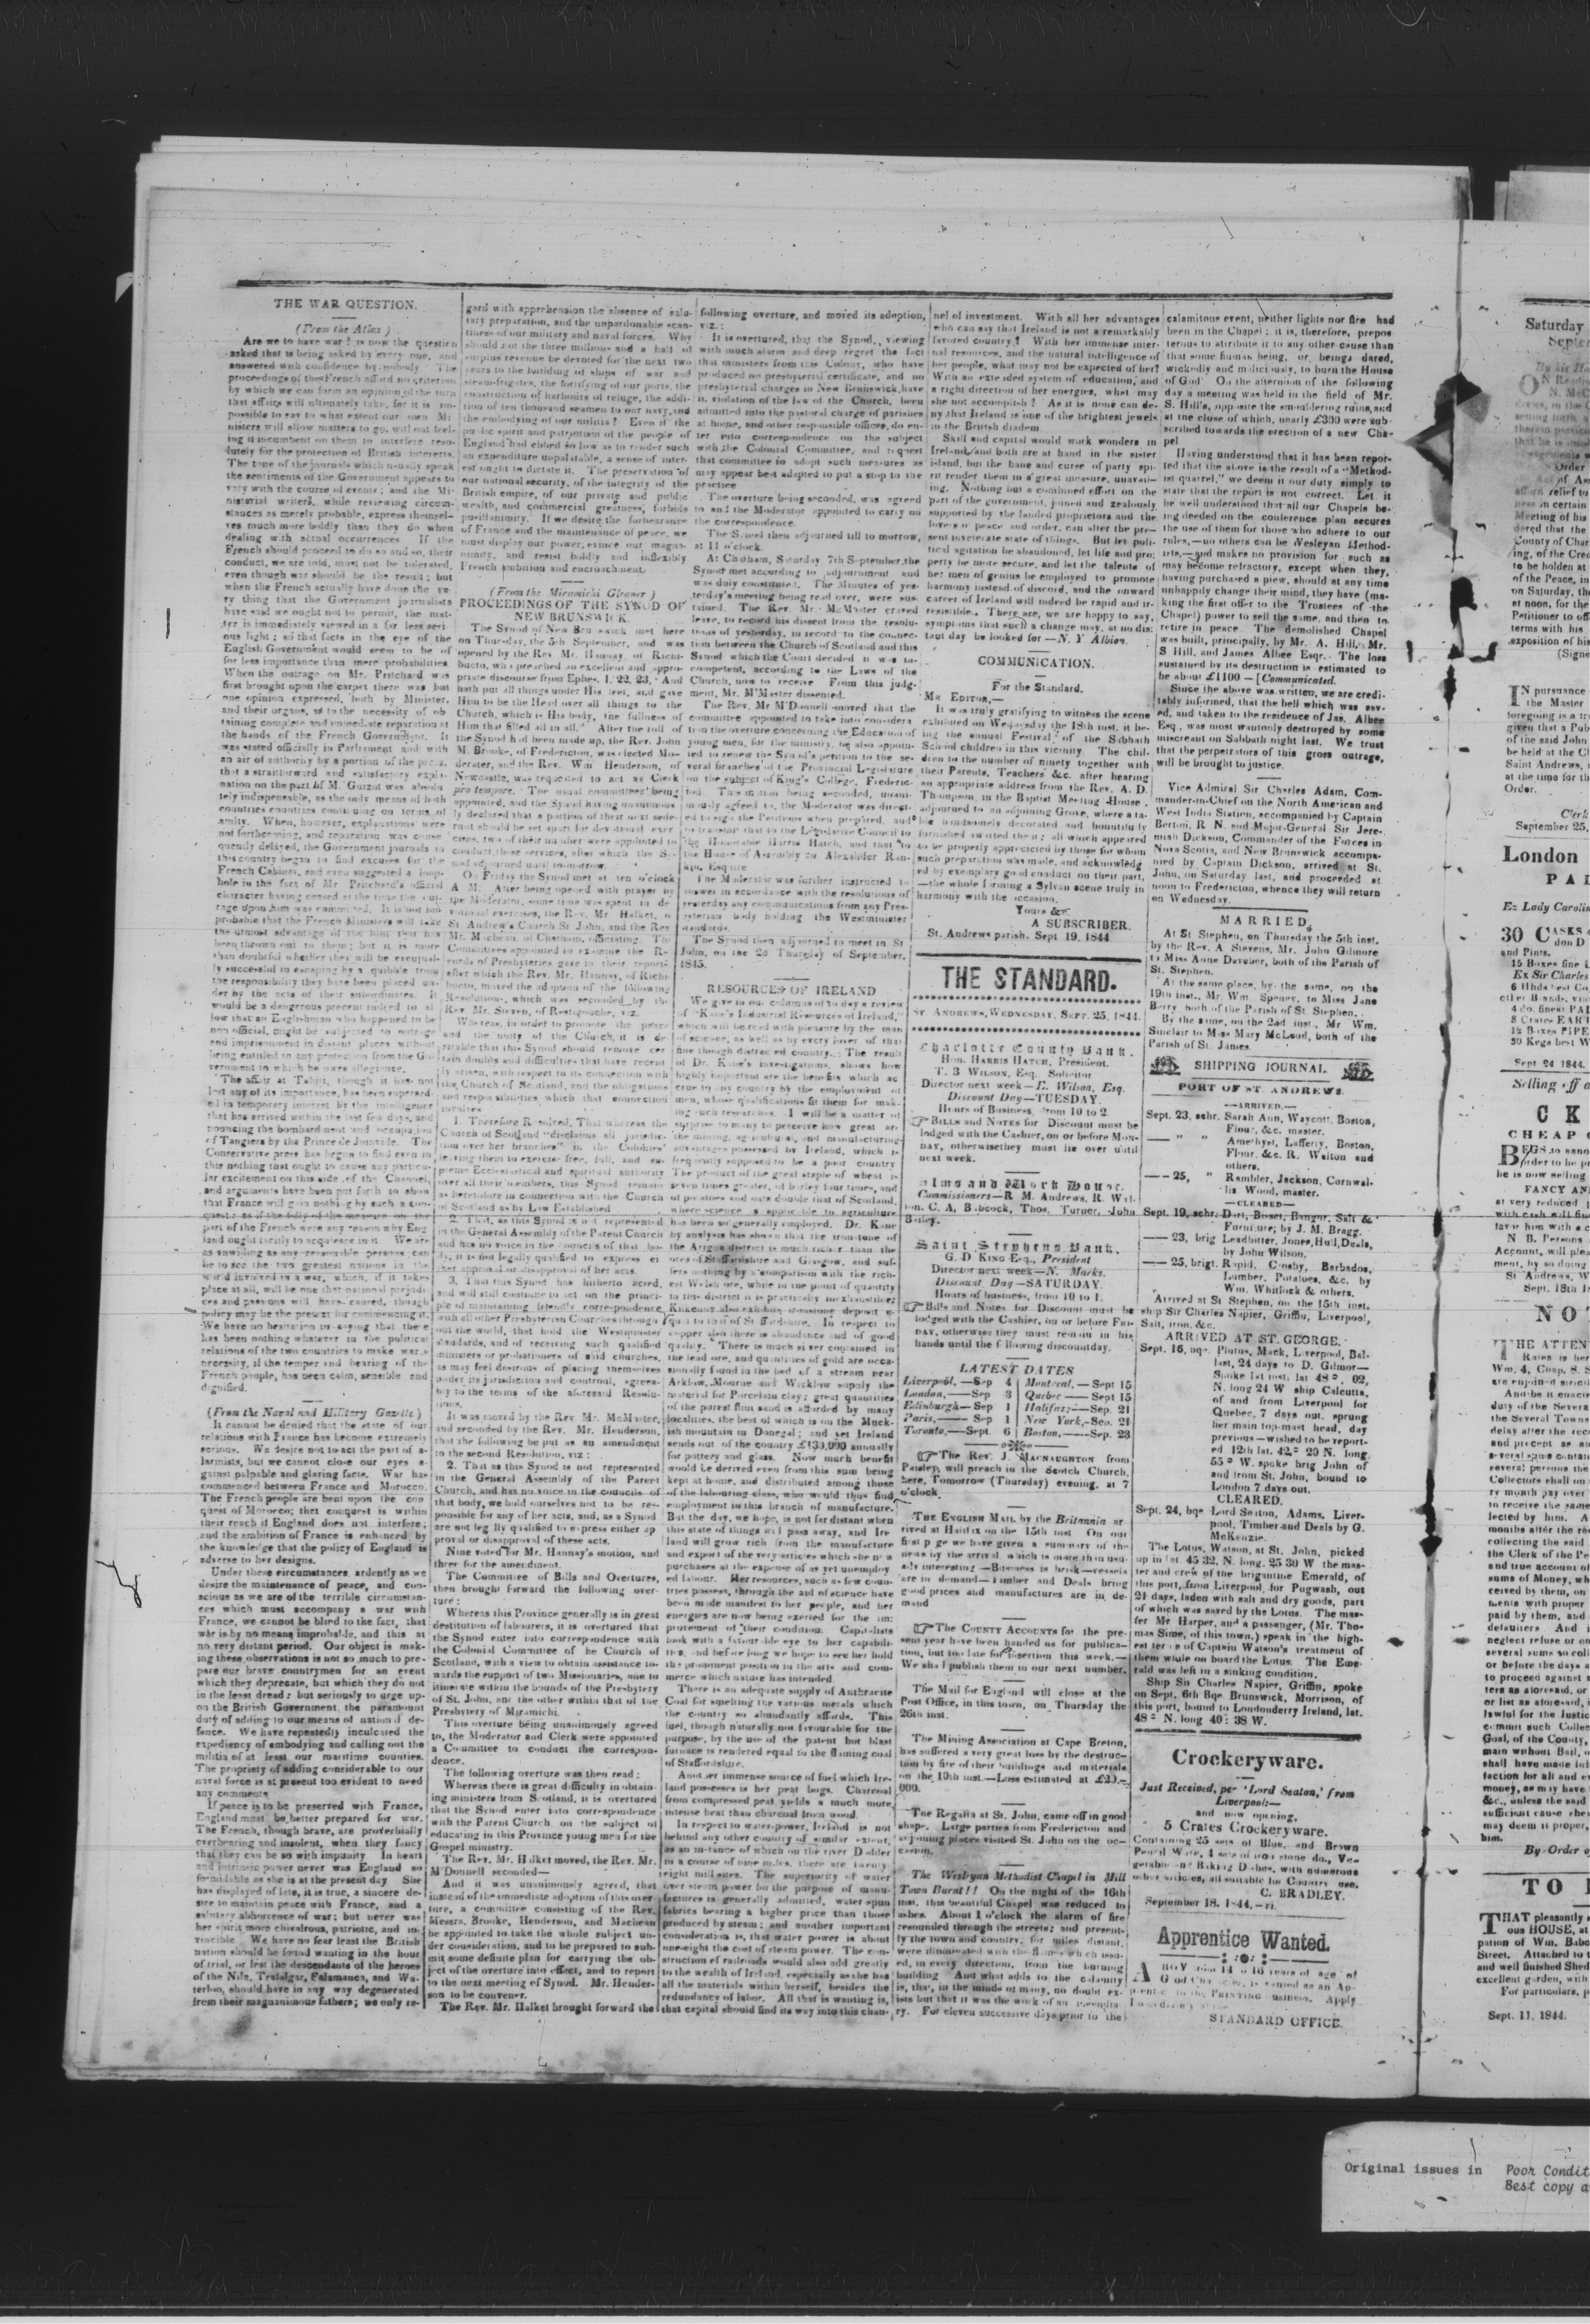 THE WAR QUESTION.
(From the Atlas)
Are we to have war? is now the question
asked that is being asked by every one, and
answered with confidence by nobody. The
proceedings of the French afford no criterion
by which we can form an opinion of the turn
that affairs will ultimately take, for it is im-
possible to say to what extent our own Mi
nisters will allow matters to go, without feel-
ing it incumbent on them to interfere reso-
lutely for the protection of British interests.
The tone of the journals which usually speak
the sentiments of the Government appears to
vary with the course of events; and the Mi-
nisterial writers, while reviewing circum-
stances as merely probable, express themsel-
ves much more boldly than they do when
dealing with actual occurrences. If the
French should proceed to do so and so, their
conduct, we are told, must not be tolerated,
even though war should be the result; but
when the French actually have done the ve-
ry thing that the Government journalists
have said we ought not to permit, the mat-
ter is immediately viewed in a far less seri-
ous light; so that facts in the eye of the
English Government would seem to be of
far less importance than mere probabilities.
When the outrage on Mr. Pritchard was
first brought upon the carpet there was but
one opinion expressed, both by Minister,
and their organs, as to the necessity of ob
taining complete and immediate reparation at
the hands of the French Government. It
was stated officially in Parliament and with
an air of authority by a portion of the press,
that a straitforward and satisfactory expla-
nation on the part of M. Guizot was absolu
tely indispensable, as the only means of both
countries continuing on terms of
amity. When, however, explanations were
not forthcoming, and reparation was conse
quently delayed, the Government journals in
this country began to find excuses for the
French Cabinet, and even suggested a loop-
hole in the fact of Mr Pritchard's official
character having ceased at the time the out-
rage upon him was committed. It is not im
probable that the French Ministers will take
the utmost advantage of the hint that has
been thrown out to them; but it is more
than doubtful whether they will be eventual-
ly successful in escaping by a quibble from
the responsibility they have been placed un-
der by the acts of their subordinates. It
would be a dangerous precent indeed to al
low that an Englishman who happened to be
non official, might be subjected to outrage
and imprisonment in distant places without
being entitled to any protection from the Go-
vernment to which he owes allegiance.
The affair at Tahiti, though it has not
lost any of its importance, has been supersed-
ed in temporary interest by the intelligence
that has arrived within the last few days, an-
nouncing the bombardment and occupation
of Tangiers by the Prince de Joinville. The
Conservative press has begun to find even in
this nothing that ought to cause any particu-
lar excitement on this side of the Channel,
and arguments have been put forth to show
that France will gain nothing by such a con-
quest; as if the folly of the measure on the
part of the French were any reason why Eng
land ought tacitly to acquiesce in it. We are
as unwilling as any reasonable persons can
be to see the two greatest nations in the
world involved in a war, which, if it takes
place at all, will be one that national prejudi-
ces and passions will have caused, though
policy may be the pretext for commencing it.
We have no hesitation in saying that there
has been nothing whatever in the political
relations of the two countries to make war a
necessity, if the temper and bearing of the
French people, has been calm, sensible and
dignified.
(From the Naval and Military Gazette)
It cannot be denied that the state of our
relations with France has become extremely
serious. We desire not to act the part of a-
larmists, but we cannot close our eyes a-
gainst palpable and glaring facts. War has
commenced between France and Morocco.
The French people are bent upon the con
quest of Morocco; that conquest is within
their reach if England does not interfere;
and the ambition of France is enhanced by
the knowledge that the policy of England is
adverse to her designs.
Under these circumstances, ardently as we
desire the maintenance of peace, and con-
scious as we are of the terrible circumstan-
ces which must accompany a war with
France, we cannot be blind to the fact, that
war is by no means improbable, and this at
no very distant period. Our object is mak-
ing these observations is not so much to pre-
pare our brave countrymen for an event
which they deprecate, but which they do not
in the least dread; but seriously to urge up-
on the British Government, the paramount
duty of adding to our means of national de-
fence. We have repeatedly inculcated the
expediency of embodying and calling out the
militia of at least our maritime counties.
The propriety of adding considerable to our
naval force is at present too evident to need
any comments.
If peace is to be preserved with France,
England must be better prepared for war.
The French, though brave, are proverbially
overbearing and insolent, when they fancy
that they can be so with impunity. In heart
and intrinsic power never was England so
formidable as she is at the present day. She
has displayed of late, it is true, a sincere de-
sire to maintain peace with France, and a
salutary abhorrence of war; but never was
her spirit more chivalrous, patriotic, and in-
vincible. We have no fear least the British
nation should be found wanting in the hour
of trial, or lest the descendants of the heroes
of the Nile, Trafalgar, Salamanca, and Wa-
terloo, should have in any way degenerated
from their magnanimous fathers; we only re-
gard with apprehension the absence of salu-
tary preparation, and the unpardonable scan-
tiness of our military and naval forces. Why
should not the three millions and a half of
surplus revenue be devoted for the next two
years to the building of ships of war and
steam-frigates, the fortifying of our ports, the
construction of harbours of refuge, the addi-
tion of ten thousand seamen to our navy, and
the embodying of our militia? Even if the
public spirit and patriotism of the people of
England had ebbed so low as to render such
an expenditure unpalatable, a sense of inter-
est ought to dictate it. The preservation of
our national security, of the integrity of the
British empire, of our private and public
wealth, and commercial greatness, forbids
pusillanimity. If we desire the forbearance
of France and the maintenance of peace, we
must display our power, evince our magna-
nimity, and resist boldly and inflexibly
French ambition and encroachment.
(From the Miramichi Gleaner)
PROCEEDINGS OF THE SYNOD OF
NEW BRUNSWICK.
The Synod of New Brunswick met here
on Thursday, the 5th September, and was
opened by the Rev. Mr. Hannay, of Richi-
bucto, who preached an excellent and appro-
priate discourse from Ephes. 1, 22, 23, And
hath put all things under His feet, and gave
Him to be the Head over all things to the
Church, which is His body, the fullness of
Him that filled all in all." After the roll of
the Synod had been made up, the Rev. John
M. Brooke, of Fredericton, was elected Mo-
derator, and the Rev. Wm Henderson, of
Newcastle, was requested to act as Clerk
pro tempore. The usual committees being
appointed, and the Synod having unanimous
ly declared that a portion of their next sede-
runt should be set apart for devotional exer
cises, two of their number were appointed to
conduct these services, after which the Sy-
nod adjourned until to-morrow.
On Friday the Synod met at ten o'clock
A M. After being opened with prayer by
the Moderator, some time was spent in de
votional exercises, the Rev. Mr Halket, of
St Andrew's Church St John, and the Rev
Mr. Macbean, of Chatham, officiating. The
Committees appointed to examine the Re-
cords of Presbyteries gave in their report
after which the Rev. Mr. Hannay, of Richi-
bucto, moved the adoption of the following
Resolutions, which was seconded by the
Rev Mr. Steven, of Restigouche, viz.
Whereas, in order to promote the peace
and the unity of the Church, it is de-
sirable that this Synod should remove cer
tain doubts and difficulties that have recent
ly arisen, with respect to its connection with
the Church of Scotland, and the obligations
and responsibilities which that connection
involves
1. Therefore Resolved, That whereas the
Church of Scotland "disclaims all jurisdic-
tion over her branches" in the Colonies'
leaving them to exercise free, full, and su-
preme Ecclesiastical and spiritual authority
over all their members, this Synod remain
as heretofore in connection with the Church
of Scotland as by Law Established.
2. That, as this Synod is not represented
in the General Assembly of the Parent Church
and has no voice in the councils of that bo-
dy, it is not legally qualified to express ei
ther approval or disapproval of her acts.
3. That this Synod has hitherto acted,
and will still continue to act on the princi-
ple of maintaining friendly correspondence
with all other Presbyterian Churches through
out the world, that hold the Westminster
standards, and of receiving such qualified
ministers or probationers of said churches,
as may feel desirous of placing themselves
under its jurisdiction and controul, agreea-
bly to the terms of the aforesaid Resolu-
tions.
It was moved by the Rev. Mr. McMaster,
and seconded by the Rev. Mr. Henderson,
that the following be put as an amendment
to the second Resolution, viz:
2. That as this Synod is not represented
in the General Assembly of the Parent
Church, and has no voice in the councils of
that body, we hold ourselves not to be res-
ponsible for any of her acts, and, as a Synod
are not legally qualified to express either ap
proval or disapproval of these acts.
Nine voted for Mr. Hannay's motion, and
three for the amendment.
The Committee of Bills and Overtures,
then brought forward the following over-
ture:
Whereas this Province generally is in great
destitution of labourers, it is overtured that
the Synod enter into correspondence with
the Colonial Committee of he Church of
Scotland, with a view to obtain assistance to-
wards the support of two Missionaries, one to
itinerate within the bounds of the Presbytery
of St. John, and the other within that of the
Presbytery of Miramichi.
This overture being unanimously agreed
to, the Moderator and Clerk were appointed
a Committee to conduct the correspon-
dence.
The following overture was then read:
Whereas there is great difficulty in obtain-
ing ministers from Scotland, it is overtured
that the Synod enter into correspondence
with the Parent Church, on the subject of
educating in this Province young men for the
Gospel ministry.
The Rev. Mr. Halket moved, the Rev. Mr.
M'Donnell seconded—
And it was unanimously agreed, that
instead of the immediate adoption of this over-
ture, a committee consisting of the Rev.
Messrs. Brooke, Henderson, and Macbean
be appointed to take the whole subject un-
der consideration, and to be prepared to sub-
mit some definite plan for carrying the ob-
ject of the overture into effect, and to report
to the next meeting of Synod. Mr. Hender-
son to be convener.
The Rev. Mr. Halket brought forward the
following overture, and moved its adoption,
viz.:
It is overtured, that the Synod, viewing
with much alarm and deep regret the fact
that ministers from this Colony, who have
produced no presbyterial certificate, and no
presbyterial charges in New Brunswick, have
in violation of the law of the Church, been
admitted into the pastoral charge of parishes
at home, and other responsible offices, do en-
ter into correspondence on the subject
with the Colonial Committee, and request
that committee to adopt such measures as
may appear best adapted to put a stop to the
practice
The overture being seconded, was agreed
to and the Moderator appointed to carry on
the correspondence.
The Synod then adjourned till to morrow,
at 11 o'clock.
At Chatham, Saturday 7th September, the
Synod met according to adjournment and
was duly constituted. The Minutes of yes-
terday's meeting being read over, were sus-
tained. The Rev. Mr. McMaster craved
leave, to record his dissent from the resolu-
tions of yesterday, in record to the connec-
tion between the Church of Scotland and this
Synod which the Court decided it was in-
competent, according to the Laws of the
Church, now to receive. From this judg-
ment, Mr. M'Master dissented.
The Rev. Mr M'Donnell moved that the
committee appointed to take into considera
tion the overture concerning the Education of
young men, for the ministry, be also appoin-
ted to renew the Synod's petition to the se-
veral branches of the Provincial Legislature
on the subject of King's College, Frederic-
ton. This motion being seconded, unani-
mously agreed to, the Moderator was direct-
ed to sign the Petitions when prepared, and
to transmit that to the Legislative Council to
the Honorable Harris Hatch, and that to
the House of Assembly to Alexander Ran-
kin, Esquire
The Moderator was further instructed to
answer in accordance with the resolutions of
yesterday any communications from any Pres-
byterian body holding the Westminister
standards.
The Synod then adjourned to meet in St
John, on the 2d Thursday of September,
1845.
RESOURCES OF IRELAND
We give in our columns of to day a review
of "Kane's Industrial Resources of Ireland,
which will be read with pleasure by the man
of science, as well as by every lover of that
fine though distracted country. The result
of Dr. Kane's investigations, shows how
highly important are the benefits which ac
crue to any country by the employment of
men, whose qualifications fit them for mak-
ing such researches. I will be a matter of
surprise to many to perceive how great are
the mining, agricultural, and manufacturing
advantages possessed by Ireland, which is
frequently supposed to be a poor country
The product of the great staple of wheat is
seven times greater, of barley four times, and
of potatoes and oats double that of Scotland,
where science as applicable to agriculture
has been so generally employed. Dr. Kane
by analysis has shown that the iron-stone of
the Arigna district is much richer than the
ores of Staffordshire and Glasgow, and suf-
fers nothing by a comparison with the rich-
est Welsh ore, while in the point of quantity
in this district it is practically inexhaustible;
Kilkenny also exhibits ironstone deposit e-
qual to that of Staffordshire. In respect to
copper also there is abundance and of good
quality. There is much silver contained in
the lead ore, and quantities of gold are occa-
sionally found in the bed of a stream near
Arklow. Mourne and Wicklow supply the
material for Porcelain clay; great quantities
of the purest flint sand is afforded by many
localities, the best of which is on the Muck-
ish mountain in Donegal; and yet Ireland
sends out of the country £130,000 annually
for pottery and glass. Now much benefit
would be derived even from this sum being
kept at home, and distributed among those
of the labouring class, who would thus find
employment in this branch of manufacture.
But the day, we hope, is not far distant when
this state of things will pass away, and Ire
land will grow rich from the manufacture
and export of the very articles which she now
purchases at the expense of as yet unemploy
ed labour. Her resources, such as few coun-
tries possess, through the aid of science have
been made manifest to her people, and her
energies are now being exerted for the im-
provement of their condition. Capitalists
look with a favourable eye to her capabili-
ties, and before long we hope to see her hold
the prominent position in the arts and com-
merce which nature has intended.
There is an adequate supply of Anthracite
Coal for smelting the various metals which
the country so abundantly affords. This
fuel, though naturally not favourable for the
purpose, by the use of the patent hot blast
furnace is rendered equal to the flaming coal
of Staffordshire.
Another immense source of fuel which Ire-
land possesses is her peat bogs. Charcoal
from compressed peat yields a much more
intense heat than charcoal from wood.
In respect to water-power, Ireland is not
behind any other country of similar extent,
as an instance of which on the river Dodder
in a course of nine miles, there are twenty
eight mill sites. The superiority of water
over steam power for the purpose of manu-
factures is generally admitted, water-spun
fabrics bearing a higher price than those
produced by steam; and another important
consideration is, that water power is about
one-eight the cost of steam power. The con-
struction of railroads would also add greatly
to the wealth of Ireland, especially as she has
all the materials within herself, besides the
redundancy of labor. All that is wanting is,
that capital should find its way into this chan-
nel of investment. With all her advantages
who can say that Ireland is not a remarkably
favored country? With her immense inter-
nal resources, and the natural intelligence of
her people, what may not be expected of her?
With an extended system of education, and
a right direction of her energies, what may
she not accomplish? As it is none can de-
ny that Ireland is one of the brightest jewels
in the British diadem.
Skill and capital would work wonders in
Ireland, and both are at hand in the sister
island, but the bane and curse of party spi-
rit render them in a great measure, unavail-
ing. Nothing but a combined effort on the
part of the government, joined and zealously
supported by the landed proprietors and the
lovers of peace and order, can alter the pre-
sent inveterate state of things. But let poli-
tical agitation be abandoned, let life and pro-
perty be more secure, and let the talents of
her men of genius be employed to promote
harmony instead of discord, and the onward
career of Ireland will indeed be rapid and ir-
resistible. There are, we are happy to say,
symptoms that such a change may, at no dis-
tant day be looked for—N. Y. Albion.
COMMUNICATION.
For the Standard.
MR. EDITOR,—
It was truly gratifying to witness the scene
exhibited on Wednesday the 18th inst, it be-
ing the annual Festival of the Sabbath
School children in this vicinity. The chil-
dren to the number of ninety together with
their Parents, Teachers &c. after hearing
an appropriate address from the Rev. A. D.
Thompson, in the Baptist Meeting House,
adjourned to an adjoining Grove, where a ta-
ble handsomely decorated and bountifully
furnished awaited them; all which appeared
to be properly appreciated by those for whom
such preparation was made, and acknowledg
ed by exemplary good conduct on their part,
—the whole forming a Sylvan scene truly in
harmony with the occasion.
Yours &c
A SUBSCRIBER.
St. Andrews parish, Sept 19, 1844
THE STANDARD.
ST ANDREWS, WEDNESDAY, SEPT. 25, 1844.
Charlotte County Bank.
HON. HARRIS HATCH, President.
T. B WILSON, Esq. Solicitor
Director next week—E. Wilson, Esq.
Discount Day—TUESDAY.
Hours of Business, from 10 to 2.
BILLS and NOTES for Discount must be
lodged with the Cashier, on or before MON-
DAY, otherwise they must lie over until
next week.
Alms and Work House.
Commissioners—R M. Andrews, R. Wal-
ton, C. A. Babcock, Thos. Turner, John
Bailey.
Saint Stephens Bank.
G. D. KING Esq., President
Director next week—N. Marks.
Discount Day—SATURDAY.
Hours of business, from 10 to 1.
Bills and Notes for Discount must be
lodged with the Cashier, on or before FRI-
DAY, otherwise they must remain in his
hands until the following discount day.
LATEST DATES
Liverpool,—Sep 4 Montreal,—Sept 15
London,—Sep 3 Quebec—Sept 15
Edinburgh—Sep 1 Halifax;—Sep. 21
Paris,—Sep 1 New York,—Sep. 21
Toronto,—Sept. 6 Boston,—Sep. 23
The Rev. J. MACNAUGHTON from
Paisley, will preach in the Scotch Church,
here, Tomorrow (Thursday) evening, at 7
o'clock.
THE ENGLISH MAIL by the Britannia ar
rived at Halifax on the 15th inst On our
first page we have given a summary of the
news by the arrival, which is more than usu-
ally interesting—Business is brisk—vessels
are in demand—Timber and Deals bring
good prices and manufactures are in de-
mand
The COUNTY ACCOUNTS for the pre-
sent year have been handed us for publica-
tion, but too late for insertion this week.—
We shall publish them in our next number.
The Mail for England will close at the
Post Office, in this town, on Thursday the
26th inst.
The Mining Association at Cape Breton,
has suffered a very great loss by the destruc-
tion by fire of their buildings and materials
on the 10th inst.—Loss estimated at £20,-
000.
The Regatta at St. John, came off in good
shape. Large parties from Fredericton and
adjoining places visited St. John on the oc-
casion.
The Wesleyan Methodist Chapel in Mill
Town Burnt!! On the night of the 16th
inst. this beautiful Chapel was reduced to
ashes. About 1 o'clock the alarm of fire
resounded through the streets; and present-
ly the town and country, for miles distant,
were illuminated with the flames which issu-
ed, in every direction, from the burning
building And what adds to the calamity
is, that, in the minds of many, no doubt ex-
ists but that it was the work of an incendia
ry. For eleven successive days prior to the
calamitous event, neither lights nor fire had
been in the Chapel; it is, therefore, prepos
terous to attribute it to any other cause than
that some human being, or beings dared,
wickedly and maliciously, to burn the House
of God On the afternoon of the following
day a meeting was held in the field of Mr.
S. Hill's, opposite the smouldering ruins, and
at the close of which, nearly £300 were sub-
scribed towards the erection of a new Cha-
pel
Having understood that it has been repor-
ted that the above is the result of a "Method-
ist quarrel," we deem it our duty simply to
state that the report is not correct. Let it
be well understood that all our Chapels be-
ing deeded on the conference plan secures
the use of them for those who adhere to our
rules,—no others can be Wesleyan Method-
ists,—and makes no provision for such as
may become refractory, except when they,
having purchased a piew, should at any time
unhappily change their mind, they have (ma-
king the first offer to the Trustees of the
Chapel) power to sell the same, and then to
retire in peace The demolished Chapel
was built, principally, by Mr. A. Hill, Mr.
S Hill, and James Albee Esqr. The loss
sustained by its destruction is estimated to
be about £1100—[Communicated.
Since the above was written, we are credi-
tably informed, that the bell which was sav-
ed, and taken to the residence of Jas. Albee
Esq., was most wantonly destroyed by some
miscreant on Sabbath night last. We trust
that the perpetrators of this gross outrage,
will be brought to justice.
Vice Admiral Sir Charles Adam, Com-
mander-in-Chief on the North American and
West India Station, accompanied by Captain
Berton, R N. and Major-General Sir Jere-
miah Dickson, Comander of the Forces in
Nova Scotia, and New Brunswick accompa-
nied by Captain Dickson, arrived at St.
John, on Saturday last, and proceeded at
noon to Fredericton, whence they will return
on Wednesday.
MARRIED,
At St Stephen, on Thursday the 5th inst.
by the Rev. A. Stevens, Mr. John Gilmore
to Miss Anne Deveber, both of the Parish of
St. Stephen.
At the same place, by the same, on the
19th inst., Mr. Wm. Spency, to Miss Jane
Berry both of the Parish of St Stephen.
By the same, on the 22d inst., Mr Wm.
Sinclair to Miss Mary McLeod, both of the
Parish of St. James.
SHIPPING JOURNAL.
PORT OF ST. ANDREWS.
—ARRIVED.—
Sept. 23, schr. Sarah Ann, Waycott, Boston,
Flour, &c. master.
— " " Amethyst, Lafferty, Boston,
Flour, &c. R. Walton and
others.
—25, " Rambler, Jackson, Cornwal-
lis Wood, master.
—CLEARED—
Sept. 19, schr. Dart, Bisset, Bangor, Salt &
Furniture; by J. M. Bragg.
—23, brig Leadbitter, Jones, Hull, Deals,
by John Wilson,
—25, brigt. Rapid, Crosby, Barbados,
Lumber, Potatoes, &c. by
Wm. Whitlock & others.
Arrived at St Stephen, on the 15th inst.
ship Sir Charles Napier, Griffin, Liverpool,
Salt, iron, &c.
ARRIVED AT ST. GEORGE.
Sept. 16, bqe. Plutus, Mack, Liverpool, Bal-
last, 24 days to D. Gilmor—
Spoke 1st inst. lat 48°. 02,
N. long 24 W ship Calcutta,
of and from Liverpool for
Quebec, 7 days out. sprung
her main top-mast head, day
previous—wished to be report-
ed 12th lat. 42° 20 N. long.
55° W. spoke brig John of
and from St. John, bound to
London 7 days out.
CLEARED.
Sept. 24, bqe Lord Seaton, Adams, Liver-
pool, Timber and Deals by G.
McKenzie.
The Lotus, Watson, at St. John, picked
up in lat. 45 32, N. long. 25 30 W the mas-
ter and crew of the brigantine Emerald, of
this port, from Liverpool for Pugwash, out
21 days, laden with salt and dry goods, part
of which was saved by the Lotus. The mas-
ter Mr Harper, and a passenger, (Mr. Tho-
mas Sime, of this town,) speak in the high-
est terms of Captain Watson's treatment of
them while on board the Lotus. The Eme-
rald was left in a sinking condition.
Ship Sir Charles Napier, Griffin, spoke
on Sept, 6th Bqe Brunswick, Morrison, of
this port, bound to Londonderry Ireland, lat.
48° N. long 40: 38 W.
Crockeryware.
Just Received, per 'Lord Seaton,' from
Liverpool:—
and now opening,
5 Crates Crockeryware.
Containing 25 sets of Blue, and Brown
Pearl Ware, 4 sets of iron stone do., Ve-
getable and Baking Dishes, with numerous
other articles, all suitable for Country use.
C. BRADLEY.
September 18, 1844.
Apprentice Wanted.
A BOY from 14 to 16 years of age of
Good Character, is wanted as an Ap-
prentice to the PRINTING business. Apply
STANDARD OFFICE.
Saturday
London
Ex Lady Carolin
30 CASKS
and Pints.
15 Boxes fine
Ex Sir Charles
Sept 24 1844.
Selling off a
CK
CHEAP
FANCY AN
at very reduced
N B. Persons
St Andrews,
NO
THE ATTEN
By Order o
TO
THAT pleasantly
ous HOUSE, at
pation of Wm. Bab
Street. Attached to
and well finished Shed
excellent garden, with
For particulars, p
Sept. 11, 1844.
Original issues in Poor Condit
Best copy a